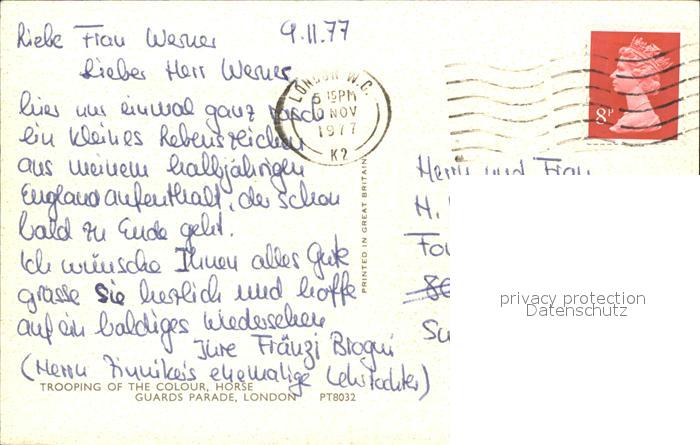 9.11.77
Liebe Frau Werner
Lieber Herr Werner,
hier nur einmal ganz rasch
ein kleines Lebenszeichen
aus meinem halbjährigen
Englandaufenthalt, der schon
bald zu Ende geht.
Ich wünsche Ihnen alles Gute
grüsse Sie herzlich und hoffe
auf ein baldiges Wiedersehen
Ihre Fränzi Brogni
(Herrn Zinniker's ehemalige Lehrtochter)
TROOPING OF THE COLOUR, HORSE
GUARDS PARADE, LONDON PT8032
PRINTED IN GREAT BRITAIN
LONDON W.C.
5 15PM
NOV
1977
K2
8P
Herrn und Frau
H.
privacy protection
Datenschutz